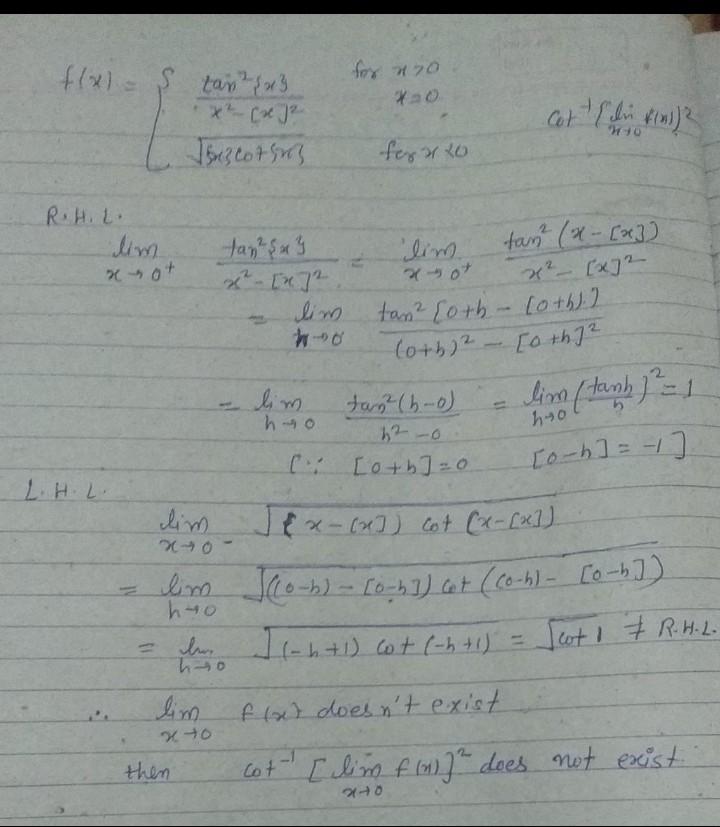 f(x) = { tan²{x} / x² - [x]² for x>0
x=0
√{x}cot{x} for x<0
cot⁻¹ [lim x→0 f(x)]²
R.H.L.
lim x→0⁺ tan²{x} / x² - [x]² = lim x→0⁺ tan² (x - [x]) / x² - [x]²
= lim h→0 tan² [0+h - [0+h)] / (0+h)² - [0+h]²
= lim h→0 tan²(h-0) / h² - 0 = lim h→0 (tanh / h)² = 1
[∵ [0+h] = 0 [0-h] = -1]
L.H.L.
lim x→0⁻ √(x - [x]) cot (x-[x])
= lim h→0 √((0-h) - [0-h]) cot ((0-h) - [0-h])
= lim h→0 √(-h+1) cot (-h+1) = √cot 1 ≠ R.H.L.
∴ lim x→0 f(x) doesn't exist
then cot⁻¹ [lim x→0 f(x)]² does not exist.